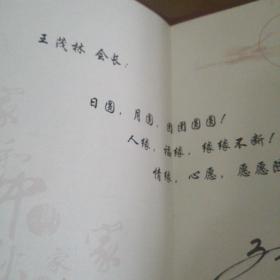 王茂林 会长：
日圆，月圆，团团圆圆！
人缘，福缘，缘缘不断！
情缘，心愿，愿愿
家